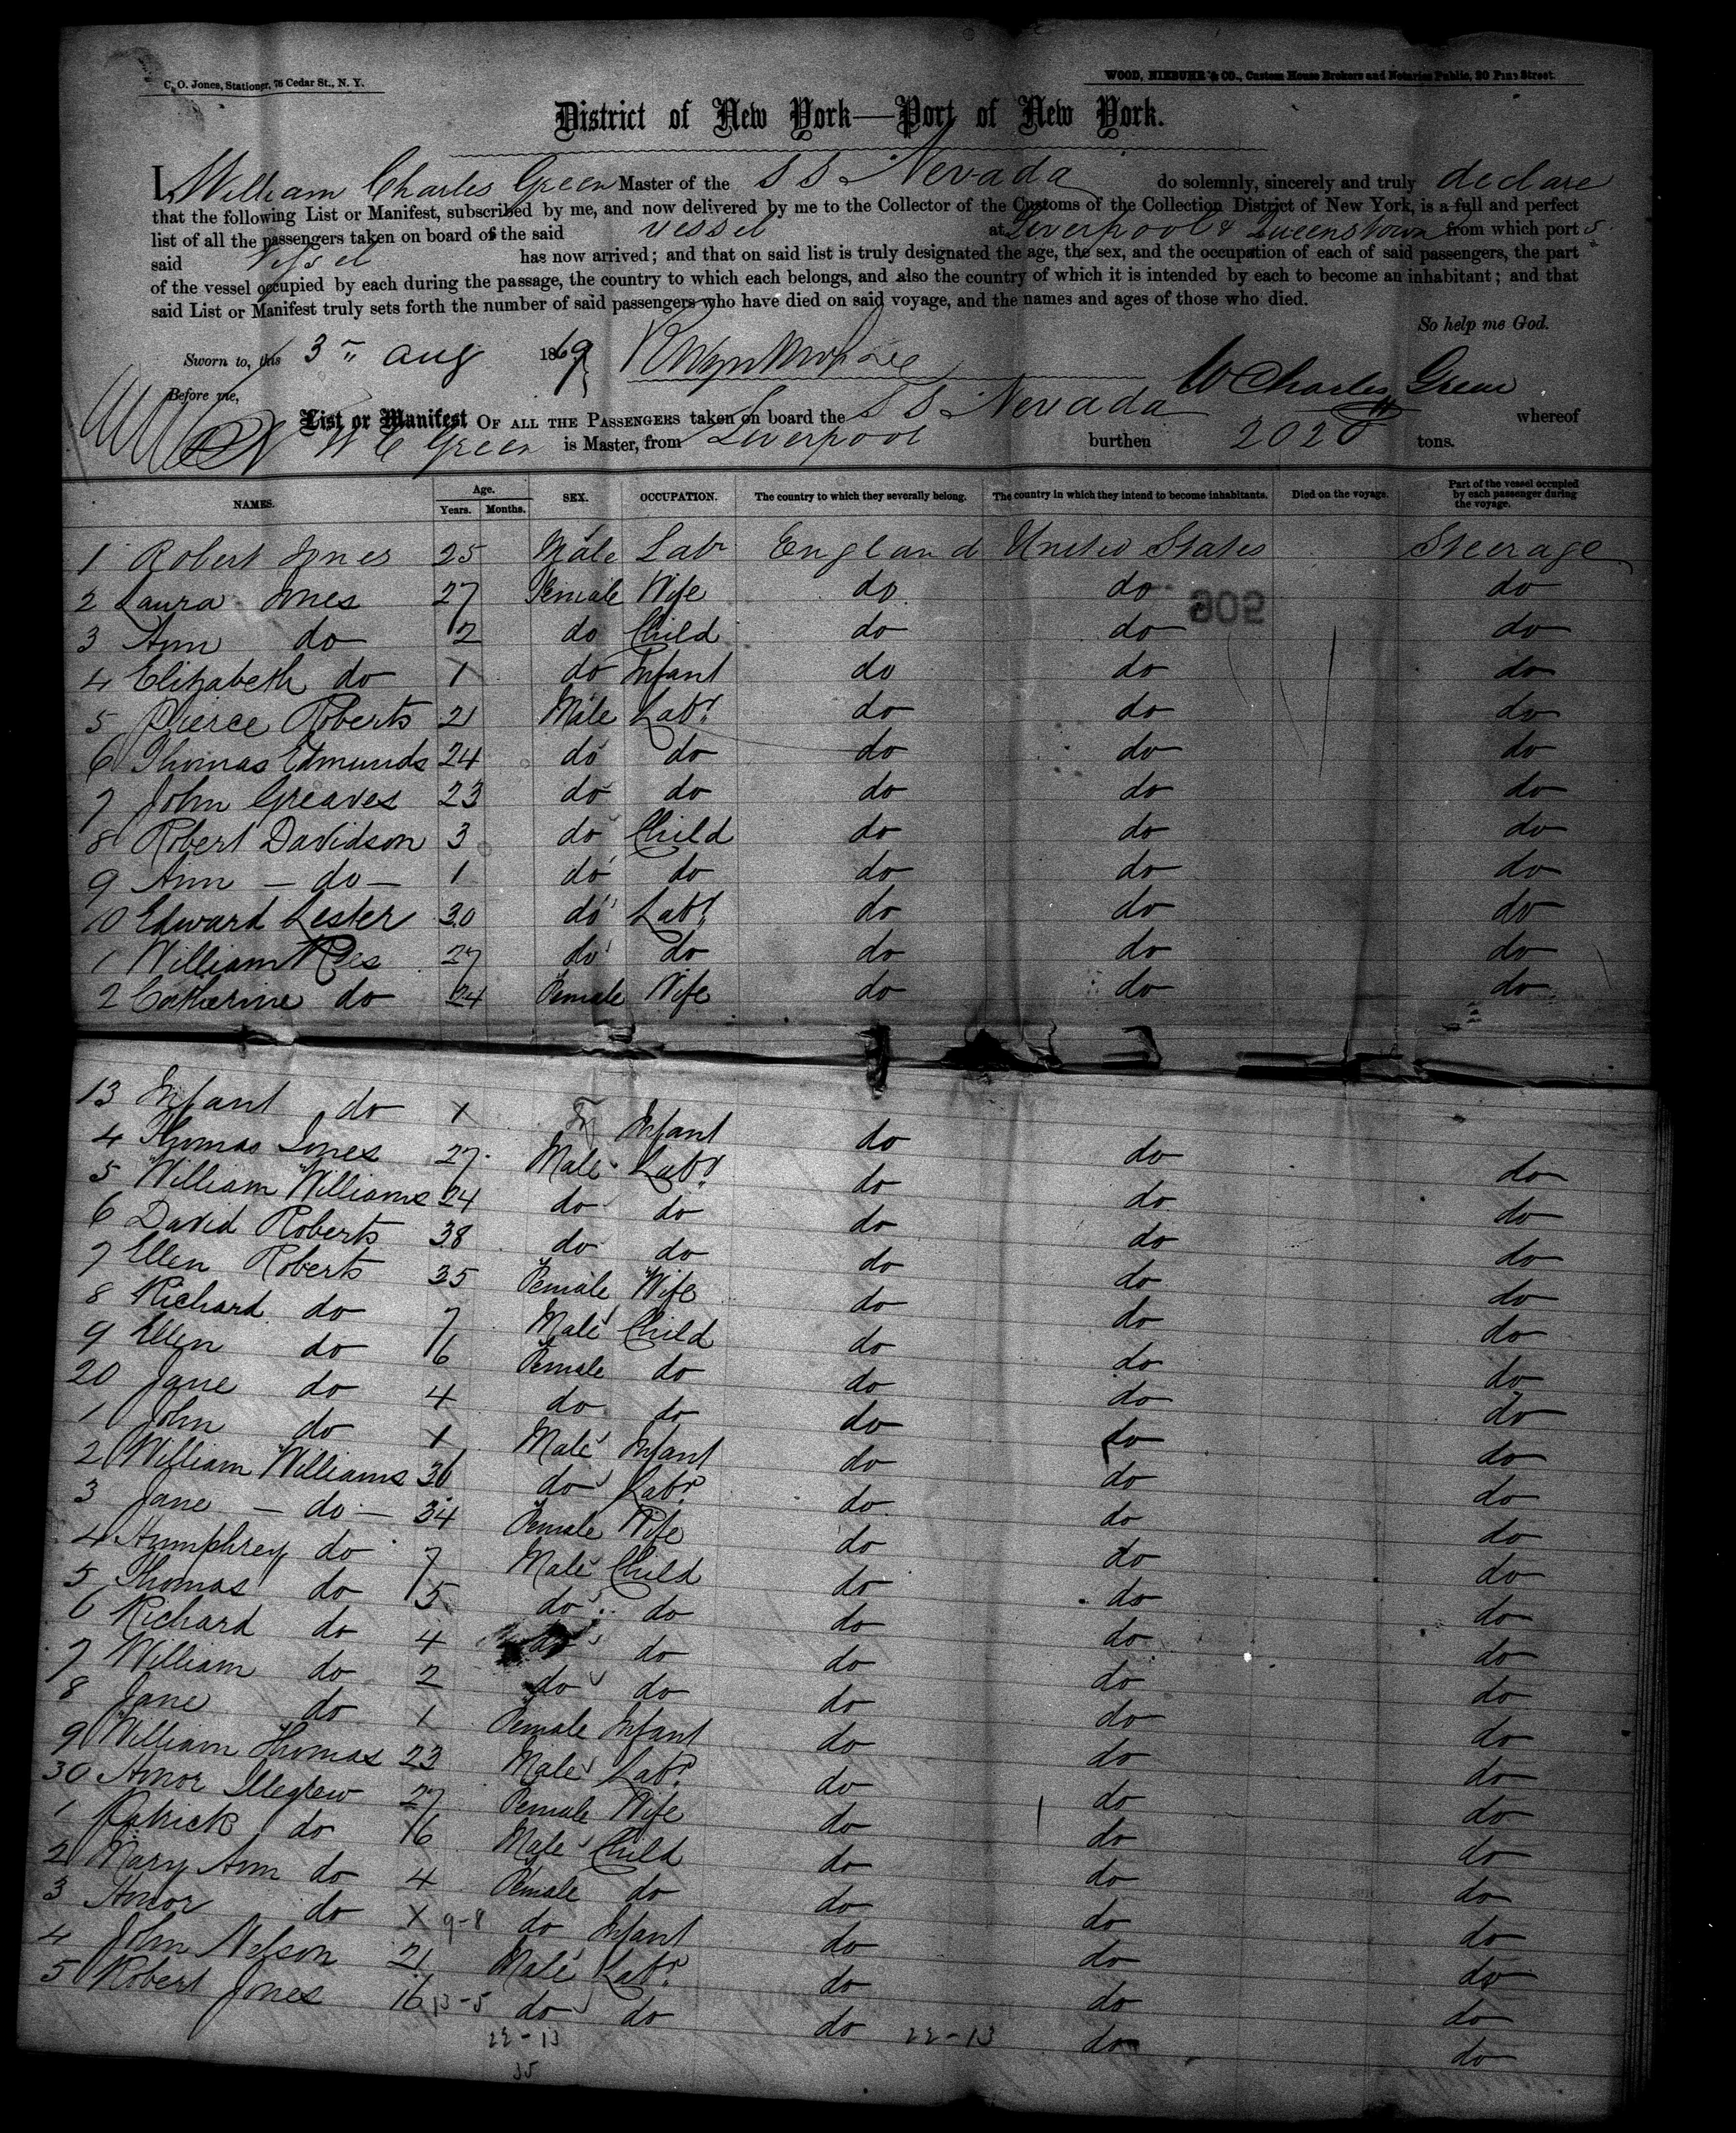 C. O. Jones, Stationer, 76 Cedar St., N. Y.
WOOD, NIEBUHR & CO., Custom House Brokers and Notaries Public, 20 Pine Street.
District of New York—Port of New York.
I, William Charles Green Master of the S S Nevada do solemnly, sincerely and truly declare
that the following List or Manifest, subscribed by me, and now delivered by me to the Collector of the Customs of the Collection District of New York, is a full and perfect
list of all the passengers taken on board of the said vessel at Liverpool & Queenstown from which port s
said Vessel has now arrived; and that on said list is truly designated the age, the sex, and the occupation of each of said passengers, the part
of the vessel occupied by each during the passage, the country to which each belongs, and also the country of which it is intended by each to become an inhabitant; and that
said List or Manifest truly sets forth the number of said passengers who have died on said voyage, and the names and ages of those who died.
So help me God.
Sworn to, this 3" aug 1869
Before me, W Charles Green
List or Manifest OF ALL THE PASSENGERS taken on board the S S Nevada whereof
W C Green is Master, from Liverpool burthen 2020 tons.
NAMES. Age. Years. Months. SEX. OCCUPATION. The country to which they severally belong. The country in which they intend to become inhabitants. Died on the voyage. Part of the vessel occupied by each passenger during the voyage.
1 Robert Jones 25 Male Labr England United States Steerage
2 Laura Jones 27 Female Wife do do do
906
3 Ann do 2 do Child do do do
4 Elizabeth do 1 do Infant do do do
5 Pierce Roberts 21 Male Labr do do do
6 Thomas Edmunds 24 do do do do do
7 John Greaves 23 do do do do do
8 Robert Davidson 3 do Child do do do
9 Ann — do — 1 do do do do do
10 Edward Lester 30 do Labr do do do
1 William Rees 27 do do do do do
2 Catherine do 24 Female Wife do do do
13 Infant do 1 Infant do do do
4 Thomas Jones 27 Male Labr do do do
5 William Williams 24 do do do do do
6 David Roberts 38 do do do do do
7 Ellen Roberts 35 Female Wife do do do
8 Richard do 7 Male Child do do do
9 Ellen do 6 Female do do do do
20 Jane do 4 do do do do do
1 John do 1 Male Infant do do do
2 William Williams 36 do Labr do do do
3 Jane — do — 34 Female Wife do do do
4 Humphrey do 7 Male Child do do do
5 Thomas do 5 do do do do do
6 Richard do 4 do do do do do
7 William do 2 do do do do do
8 Jane do 1 Female Infant do do do
9 William Thomas 23 Male Labr do do do
30 Amor 27 Female Wife do do do
1 Patrick do 6 Male Child do do do
2 Mary Ann do 4 Female do do do do
3 Amor do X 9-8 do Infant do do do
4 John Nelson 21 Male Labr do do do
5 Robert Jones 16 13-5 do do do do do
22-13 22-13
35